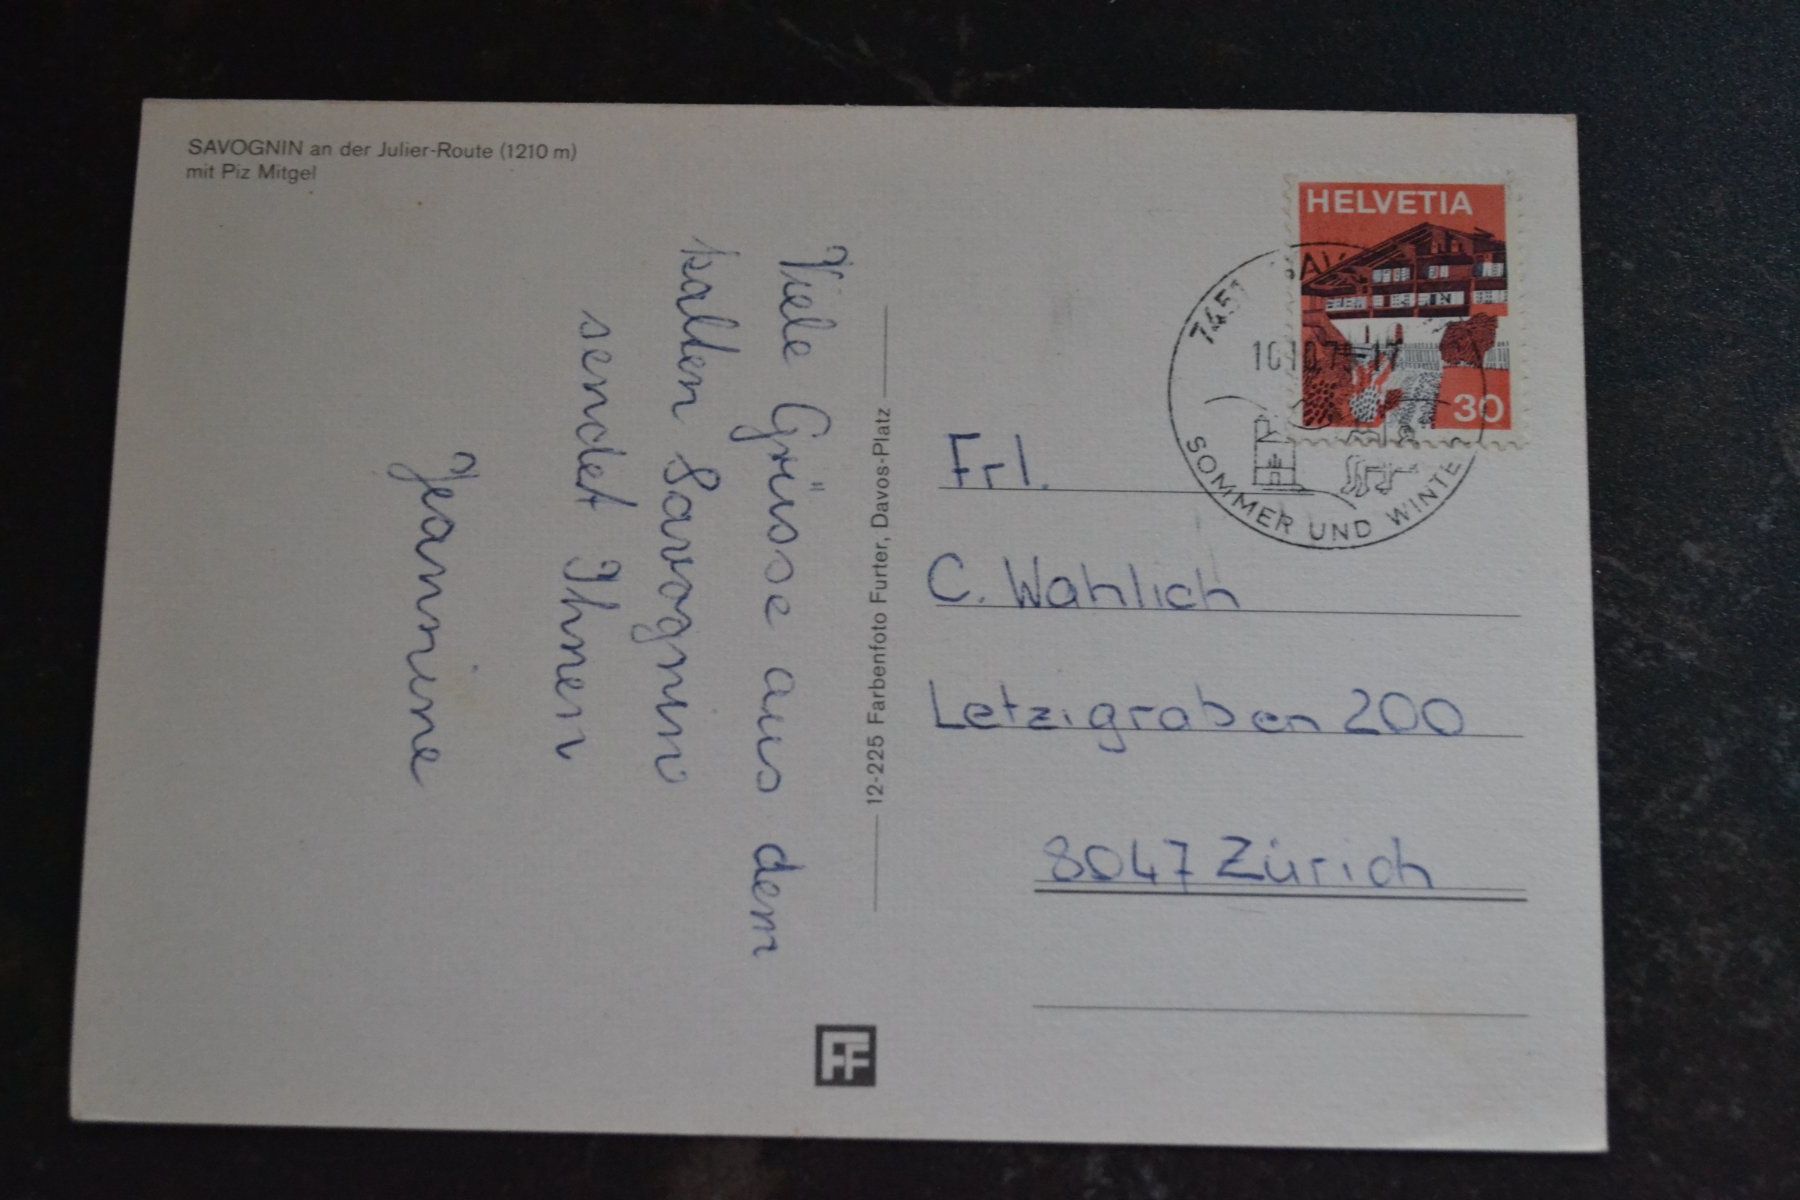 SAVOGNIN an der Julier-Route (1210 m)
mit Piz Mitgel
Viele Grüsse aus dem
kalten Savognin
sendet Ihnen
Jeannine
12-225 Farbenfoto Furter, Davos-Platz
FF
HELVETIA
30
SOMMER UND
Frl.
C. Wahlich
Letzigraben 200
8047 Zürich